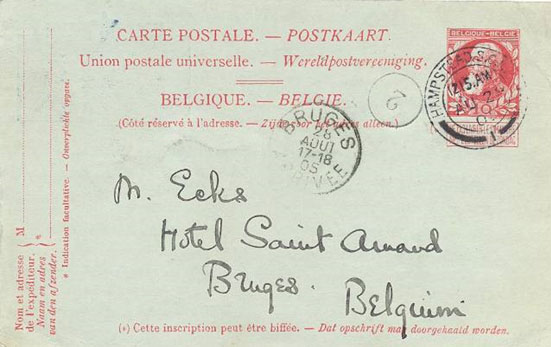 CARTE POSTALE. — POSTKAART.
Union postale universelle. — Wereldpostvereeniging.
BELGIQUE. — BELGIE.
(Côté réservé à l'adresse. — Zijde voor het adres alleen.)
BELGIQUE-BELGIE
HAMPSTEAD S.O.
12.15.AM
AU
1
2
BRUGES
28
AOUT
17-18
05
M. Ecks
Hotel Saint Amand
Bruges.
Belgium
(*) Cette inscription peut être biffée. — Dat opschrift mag doorgehaald worden.
Nom et adresse
de l'expéditeur.
Naam en adres
van den afzender.
M
* Indication facultative. — Onverplichte opgave.